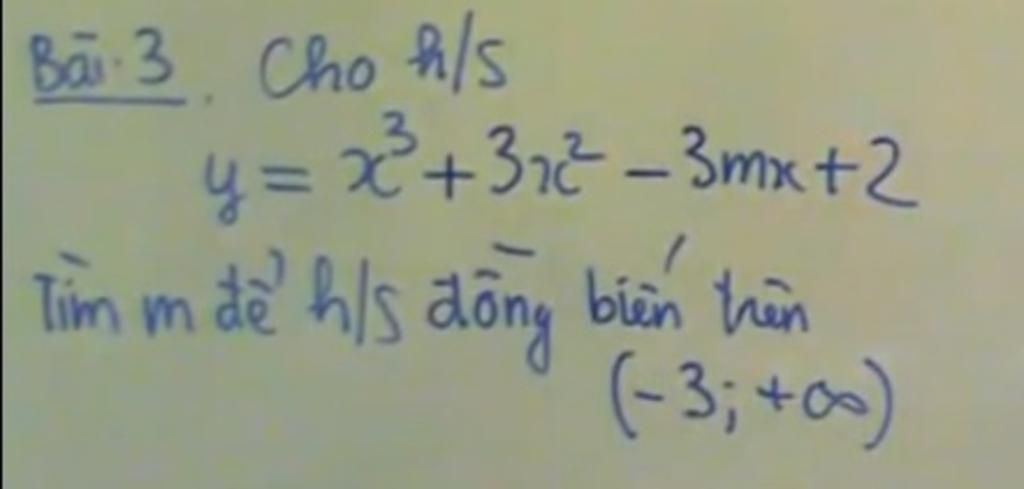 Bài 3. Cho h/s
y = x³ + 3x² - 3mx + 2
Tìm m để h/s đồng biến trên
(-3; +∞)